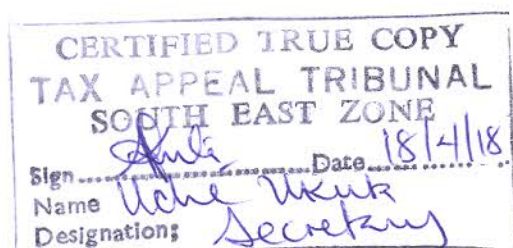 CERTIFIED TRUE COPY
TAX APPEAL TRIBUNAL
SOUTH EAST ZONE
Sign.............Date 18/4/18
Name Uche Ukuk
Designation; Secretary